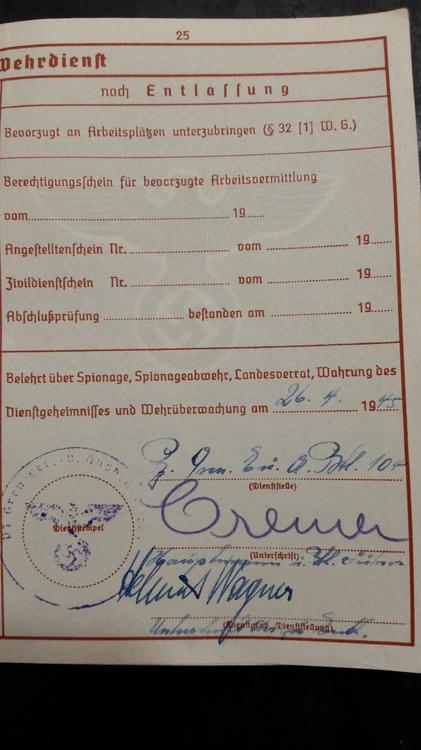 25
Wehrdienst
noch Entlassung
Bevorzugt an Arbeitsplätzen unterzubringen (§ 32 [1] W. G.)
Berechtigungsschein für bevorzugte Arbeitsvermittlung
vom 19
Angestelltenschein Nr. vom 19
Zivildienstschein Nr. vom 19
Abschlußprüfung bestanden am 19
Belehrt über Spionage, Spionageabwehr, Landesverrat, Wahrung des
Dienstgeheimnisses und Wehrüberwachung am 26. 4. 1945
Pz. Gren. Eu. A. Btl. 104
(Dienststelle)
Cremer
Dienststempel
(Unterschrift)
Hauptmann u.
Helmut Wagner
Unterschrift
(Dienstgrad, Dienststellung)